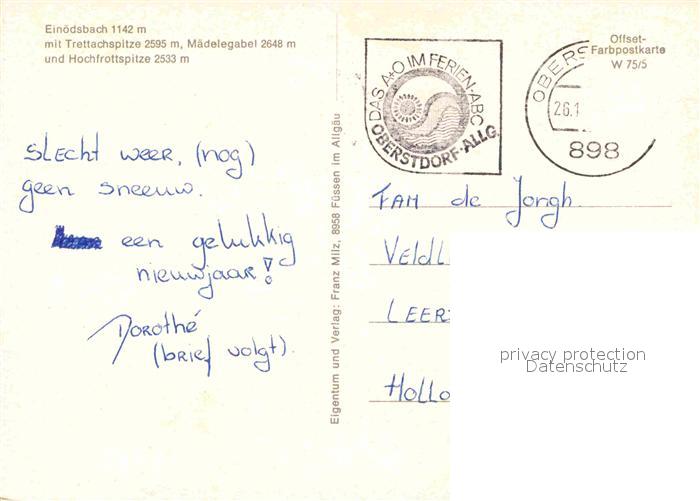 Einödsbach 1142 m
mit Trettachspitze 2595 m, Mädelegabel 2648 m
und Hochfrottspitze 2533 m
Offset-
Farbpostkarte
W 75/5
DAS A+O IM FERIEN-ABC
OBERSTDORF-ALLG.
OBERS
26.1
898
slecht weer, (nog)
geen sneeuw.
een gelukkig
nieuwjaar!
Dorothé
(brief volgt).
Eigentum und Verlag: Franz Milz, 8958 Füssen im Allgäu
Fam de Jongh
Veldl
Leer
Hollo
privacy protection
Datenschutz